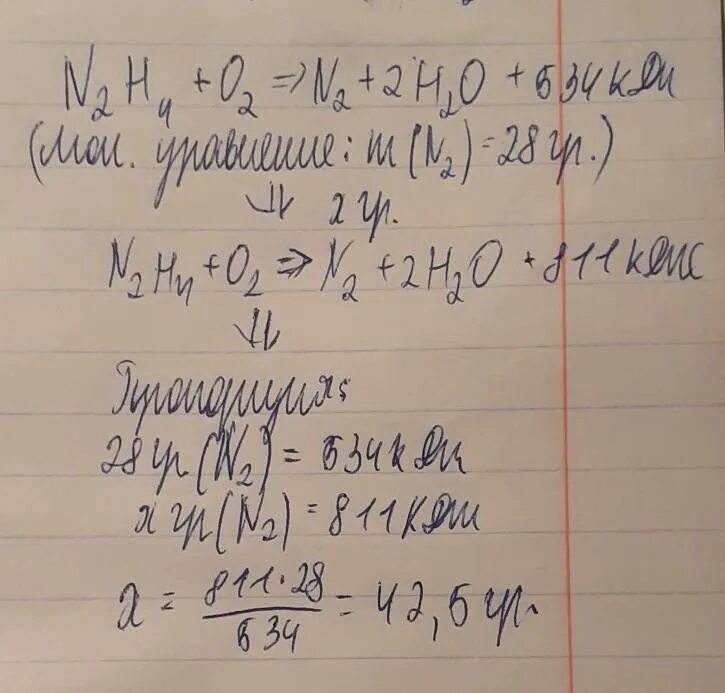 N₂H₄ + O₂ => N₂ + 2H₂O + 534 кДж
(Мол. уравнение: m (N₂) = 28 гр.)
х гр.
N₂H₄ + O₂ => N₂ + 2H₂O + 811 кДж
Пропорция:
28 гр (N₂) = 534 кДж
х гр (N₂) = 811 кДж
х = 811·28 / 534 = 42,5 гр.